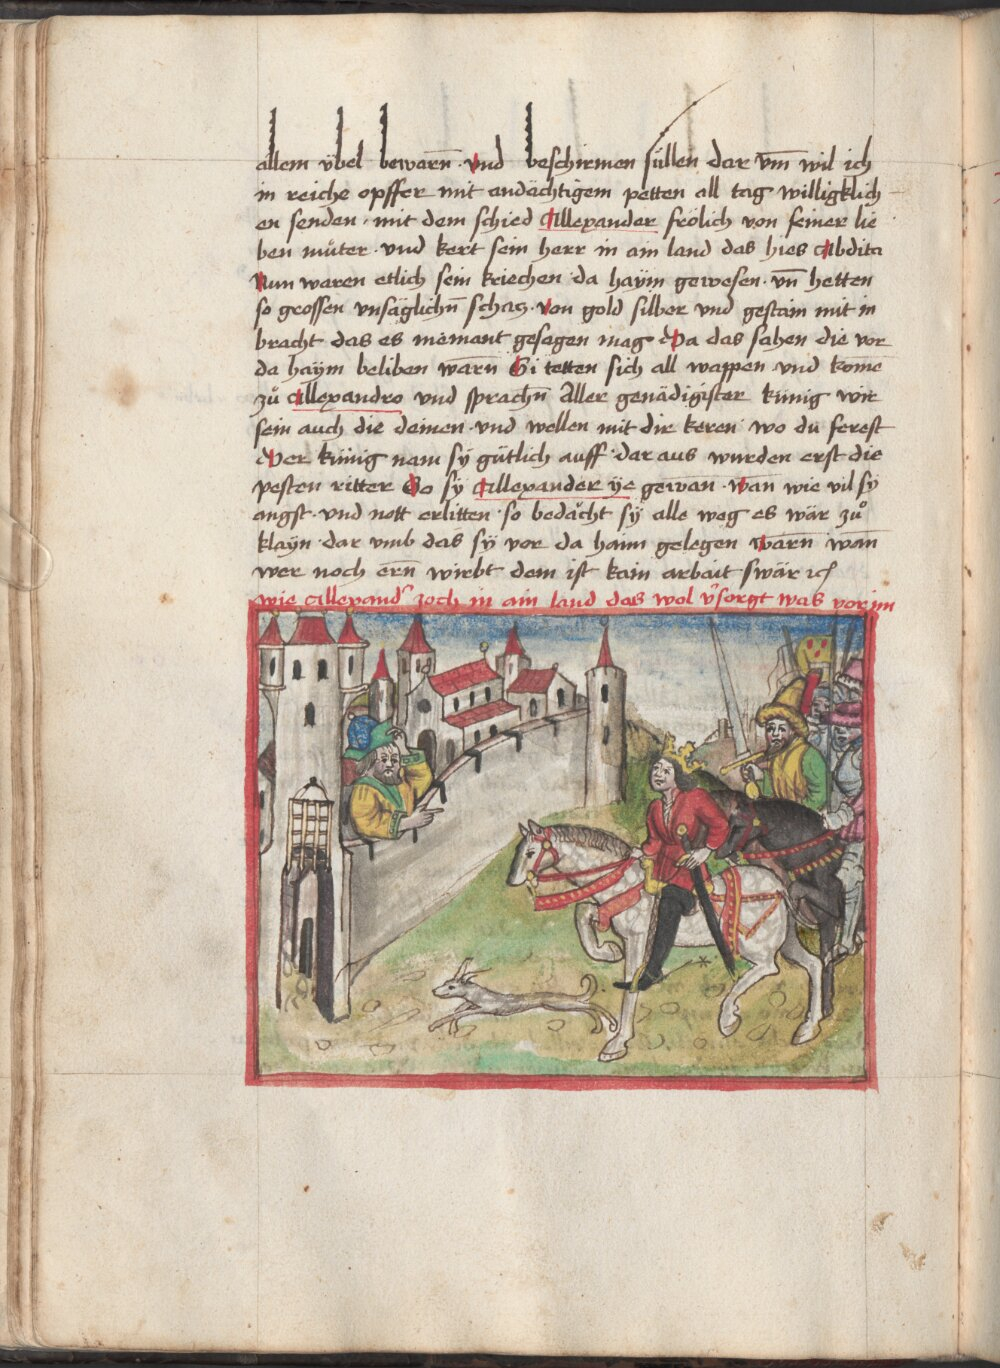 allem übel bewarn̄ · und beschirmen süllen dar vm̄ wil ich
in reiche opffer mit andächtigem petten all tag willigklich
en senden · mit dem schied Allexander frölich von seiner lie
ben muͦter · und kert sein herr in ain land das hies Abdita
Nun waren etlich sein kriechen da haÿm gewesen · vn̄ hetten
so grossen vnsäglichn̄ schacz · von gold silber und gestain mit in
bracht das es niemant gesagen mag Da das sahen die vor
da haÿm beliben warn̄ Si tetten sich all wappen und kome̅
zuͦ Allexandro und sprachn̄ Aller genädigister künig wir
sein auch die deinen · und wellen mit dir keren wo du ferest
Der künig nam sÿ gütlich auff · dar aus wurden erst die
pesten ritter So sÿ Allexander ÿe gewan · wan wie vil sÿ
angst · und nott erlitten · so bedächt sÿ alle weg es wär zuͦ
klaÿn · dar vmb das sÿ vor da haim gelegen warn̄ wan̄
wer noch ern̄ wirbt dem ist kain arbait swär
wie Allexand' zoch in ain land das wol v'sorgt was vor im